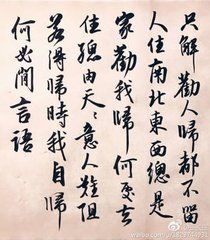 只解勸人歸都不留
人住南北東西總是
家勸我歸何處去
住總由天〻意人難阻
若得歸時我自歸
何必閒言語